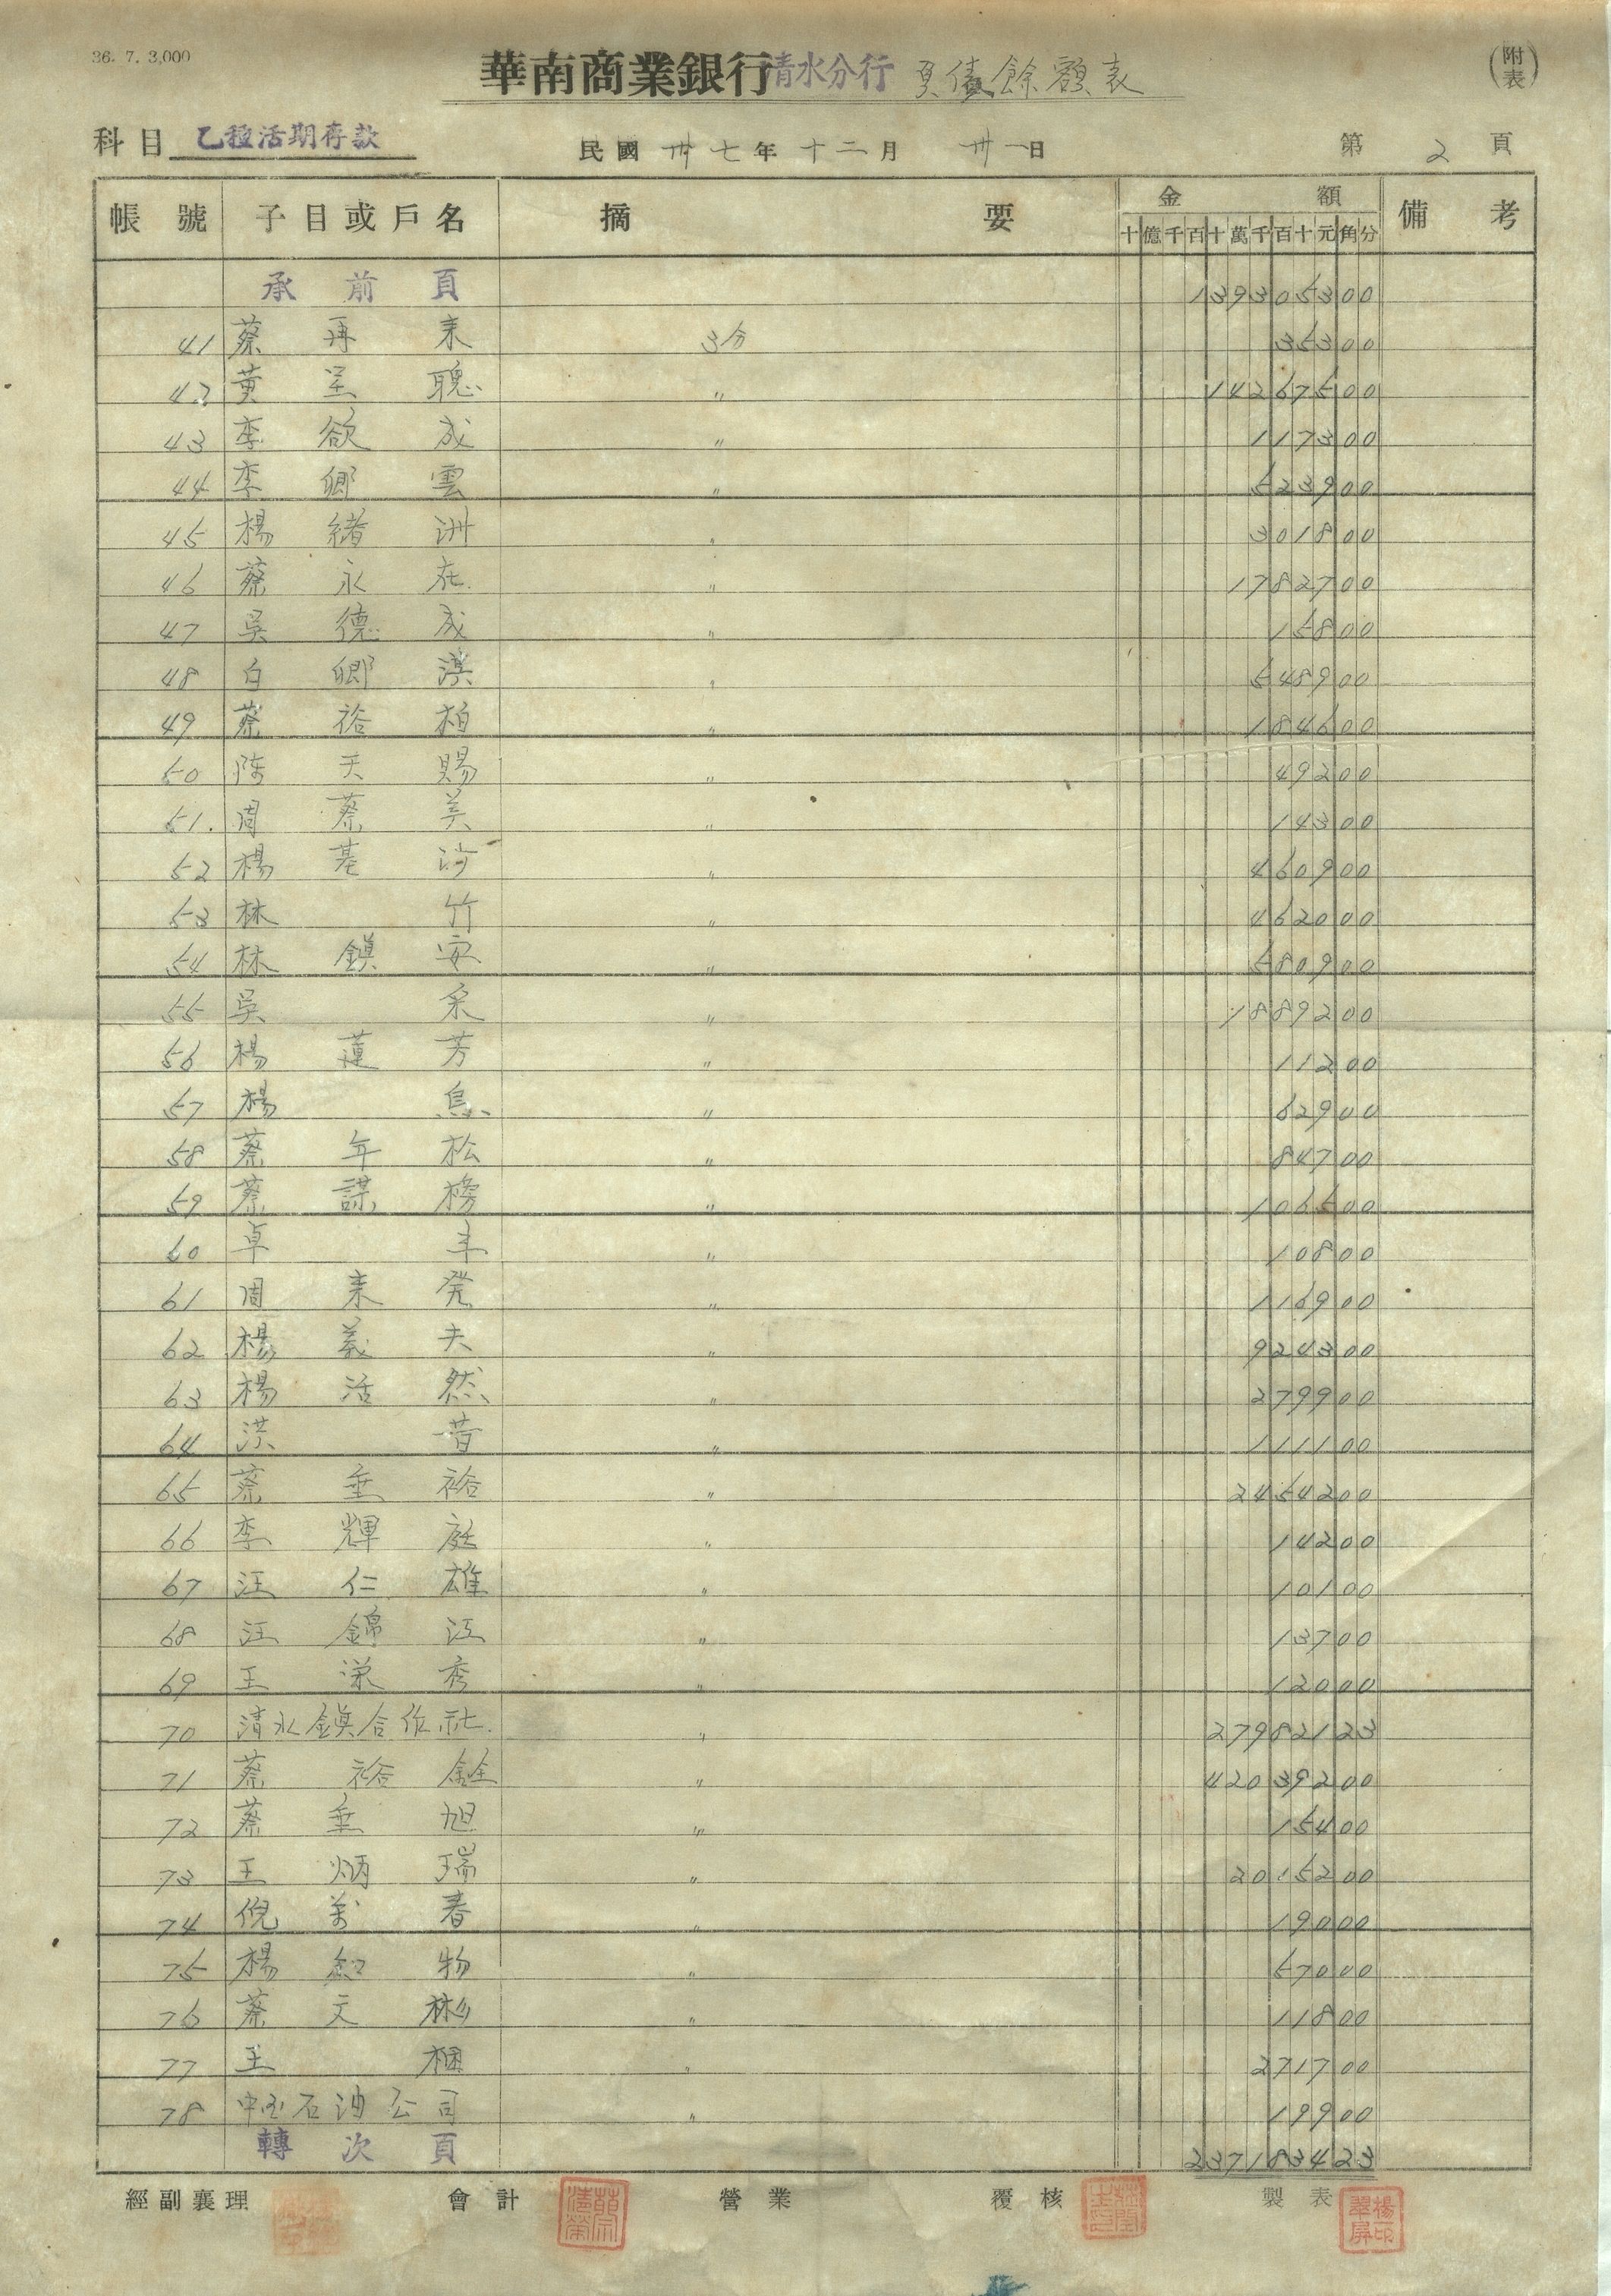 36. 7. 3,000
華南商業銀行清水分行 負債餘額表
(附表)
科目 乙種活期存款 民國 卅七年 十二月 卅一日 第 2 頁
帳號 子目或戶名 摘要 金額 備考
十億千百十萬千百十元角分
承前頁 1393053 00
41 蔡再来 3分 353 00
42 黄呈聰 〃 142675 00
43 李欲成 〃 1173 00
44 李卿雲 〃 5239 00
45 楊緒洲 〃 3018 00
46 蔡永在 〃 17827 00
47 吳德成 〃 158 00
48 白卿淇 〃 5489 00
49 蔡裕柏 〃 1846 00
50 陈天賜 〃 492 00
51 周蔡美 〃 143 00
52 楊基沙 〃 4609 00
53 林竹 〃 4620 00
54 林鎮安 〃 5809 00
55 吳 〃 18892 00
56 楊蓮芳 〃 112 00
57 楊 〃 629 00
58 蔡年松 〃 847 00
59 蔡謀 〃 1065 00
60 卓 〃 108 00
61 周来発 〃 1169 00
62 楊義夫 〃 9243 00
63 楊活然 〃 2799 00
64 洪昔 〃 1111 00
65 蔡垂裕 〃 24542 00
66 李輝庭 〃 142 00
67 汪仁雄 〃 101 00
68 汪錦江 〃 137 00
69 王栄秀 〃 120 00
70 清水鎮合作社 〃 279821 23
71 蔡裕銓 〃 420392 00
72 蔡垂旭 〃 154 00
73 王炳瑞 〃 20152 00
74 倪萬春 〃 190 00
75 楊物 〃 570 00
76 蔡文彬 〃 118 00
77 王梱 〃 2717 00
78 中国石油公司 〃 199 00
轉次頁 2371834 23
經副襄理 會計 營業 覆核 製表
楊翠屏印